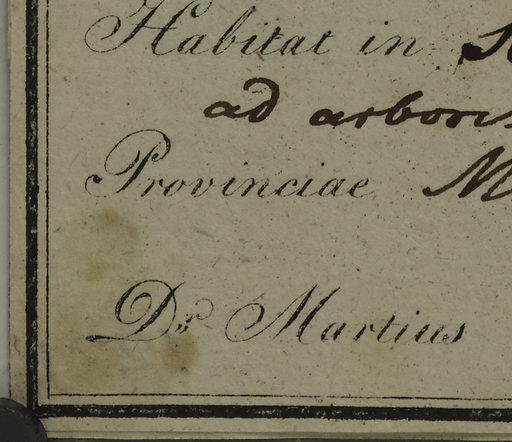 Habitat in
ad arboris
Provinciae M
Dr. Martius